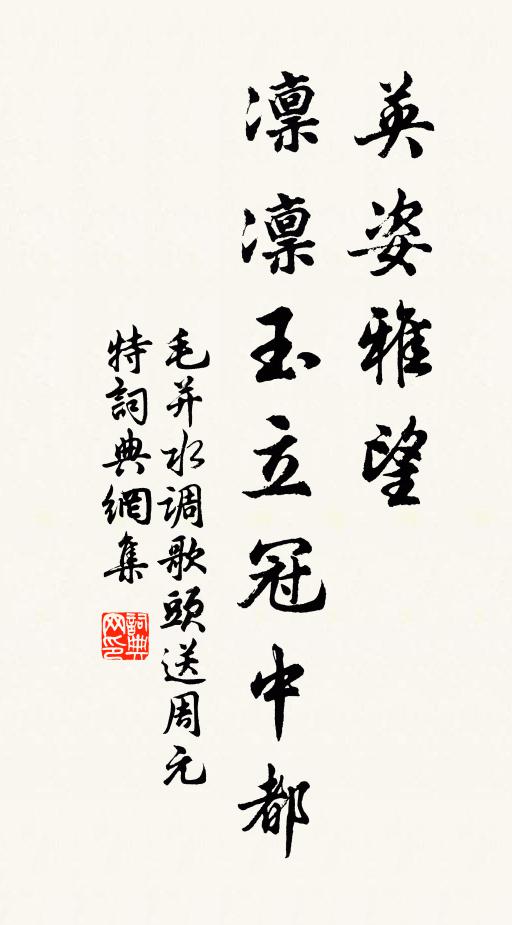 英姿雅望
凛凛玉立冠中都
毛并水调歌頭送周元
特詞典網集
詞典网印